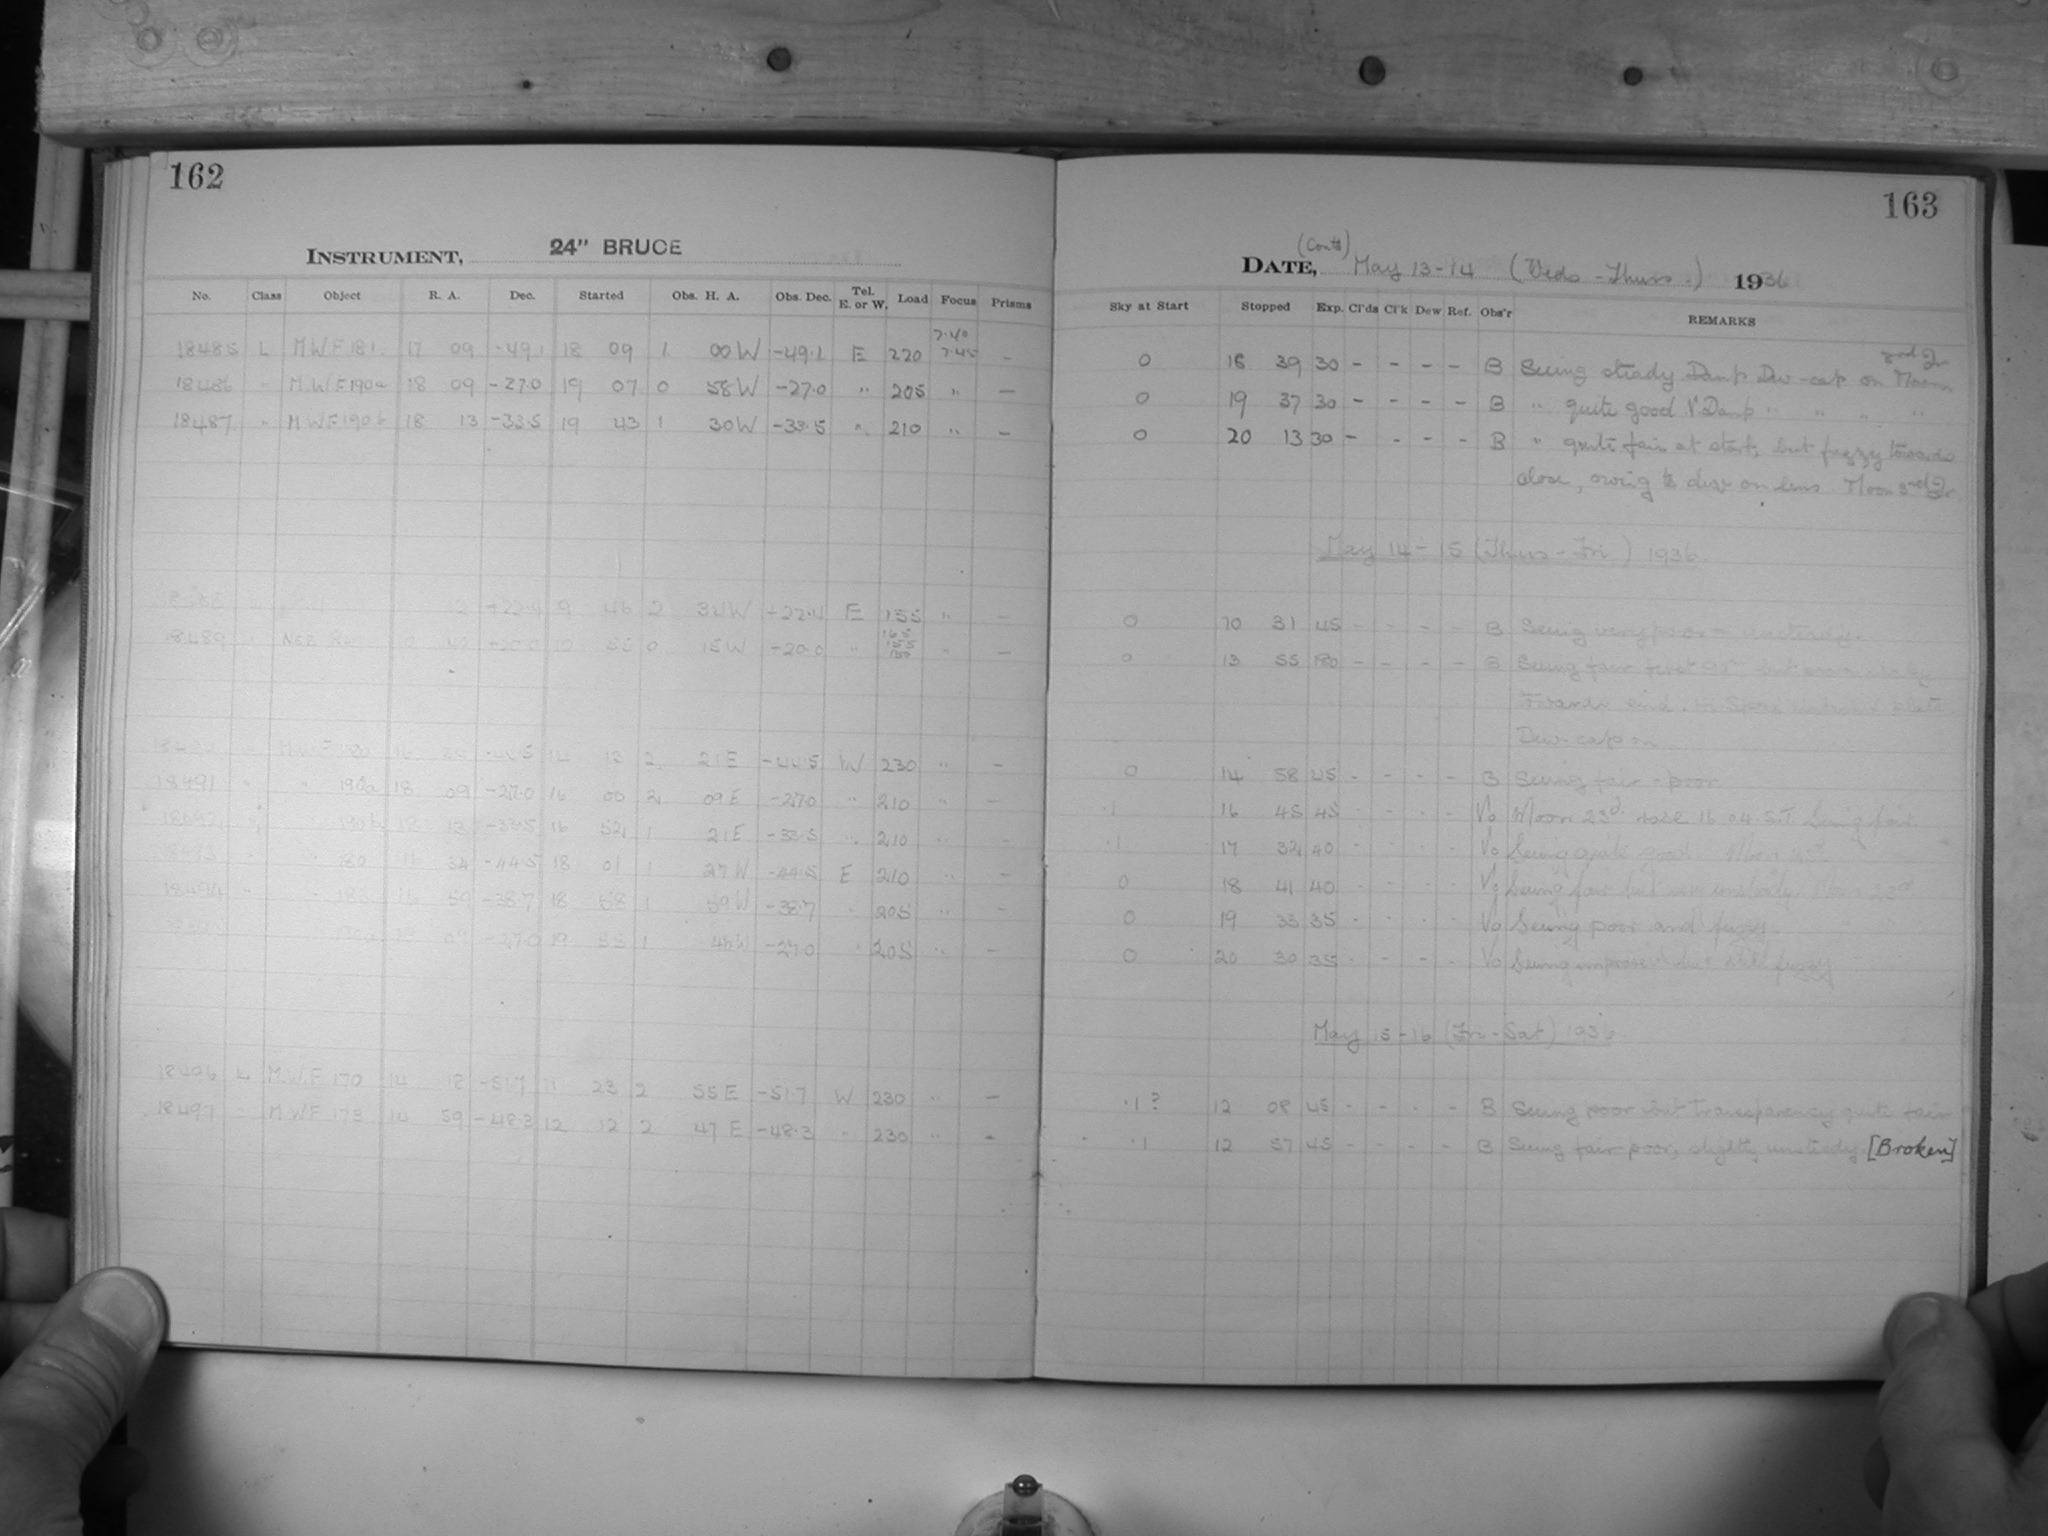 162
INSTRUMENT, 24" BRUCE
No. Class Object R. A. Dec. Started Obs. H. A. Obs. Dec. Tel. E. or W. Load Focus Prisms
7.40
18485 L M.W.F 181. 17 09 -49.1 18 09 1 00 W -49.1 E 220 7.45 –
18486 " M.W.F 190a 18 09 -27.0 19 07 0 58 W -27.0 " 205 " –
18487 " M.W.F 190b 18 13 -33.5 19 43 1 30 W -33.5 " 210 " –
12 +22.4 9 46 2 34 W +22.4 E 155 " –
18489 " 55 0 15 W +20.0 " " –
14 13 2 21 E -44.5 W 230 " –
18491 " " 190a 18 09 -27.0 16 00 2 09 E -27.0 " 210 " –
" 190b 18 13 -33.5 16 52 1 21 E -33.5 " 210 " –
" 180 16 34 -44.5 18 01 1 27 W -44.5 E 210 " –
18494 " " 16 59 -38.7 18 58 1 59 W -38.7 " 205 " –
09 -27.0 19 55 1 46 W -27.0 " 205 " –
18496 L M.W.F 170 14 18 -51.7 11 23 2 55 E -51.7 W 230 " –
18497 " M.W.F 173 14 59 -48.3 12 12 2 47 E -48.3 " 230 " –
163
(Contd)
DATE, May 13-14 (Weds - Thurs.) 1936
Sky at Start Stopped Exp. Cl'ds Cl'k Dew Ref. Obs'r REMARKS
0 18 39 30 – – – – B Seeing steady Damp Dew-cap on Moon 3rd Qr
0 19 37 30 – – – – B " quite good V. Damp " " " "
0 20 13 30 – – – – B " quite fair at start, but fuzzy towards
close, owing to dew on lens. Moon 3rd Qr
May 14-15 (Thurs - Fri.) 1936.
0 10 31 45 – – – – B Seeing very poor & unsteady.
0 13 55 180 – – – – B Seeing fair first but
Towards end. plate
Dew-cap on
0 14 58 45 – – – – B Seeing fair - poor
.1 16 45 45 – – – – Vo Moon 23d. rose 16 04 S.T. Seeing fair.
.1 17 32 40 – – – – Vo Seeing quite good. Moon
0 18 41 40 – – – – Vo Seeing fair but unsteady. Moon 23d
0 19 33 35 – – – – Vo Seeing poor and fuzzy.
0 20 30 35 – – – – Vo Seeing improved but still fuzzy
May 15-16 (Fri - Sat) 1936
.1? 12 08 45 – – – – B Seeing poor but transparency quite fair
.1 12 57 45 – – – – B Seeing fair poor, slightly unsteady. [Broken]